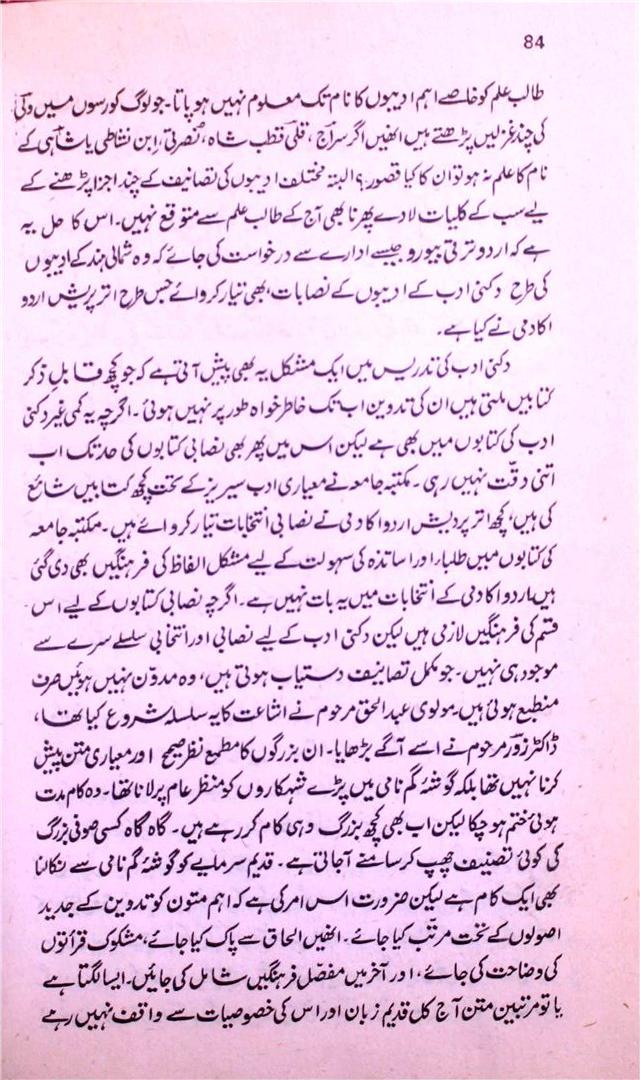 84
طالب علم کو خاصے اہم ادیبوں کا نام تک معلوم نہیں ہو پاتا۔ جو لوگ کورسوں میں ولی
کی چند غزلیں پڑھتے ہیں انھیں اگر سراج، قلی قطب شاہ، نصرتی، ابن نشاطی یا شاہی کے
نام کا علم نہ ہو تو ان کا کیا قصور؟ البتہ مختلف ادیبوں کی تصانیف کے چند اجزا پڑھنے کے
لیے سب کے کلیات لادے پھرنا بھی آج کے طالب علم سے متوقع نہیں۔ اس کا حل یہ
ہے کہ اردو ترقی بیورو جیسے ادارے سے درخواست کی جائے کہ وہ شمالی ہند کے ادیبوں
کی طرح دکنی ادب کے ادیبوں کے نصابات بھی تیار کروائے جس طرح اتر پردیش اردو
اکادمی نے کیا ہے۔
دکنی ادب کی تدریس میں ایک مشکل یہ بھی پیش آتی ہے کہ جو کچھ قابلِ ذکر
کتابیں ملتی ہیں ان کی تدوین اب تک خاطر خواہ طور پر نہیں ہوئی۔ اگرچہ یہ کمی غیر دکنی
ادب کی کتابوں میں بھی ہے لیکن اس میں پھر بھی نصابی کتابوں کی حد تک اب
اتنی دقّت نہیں رہی۔ مکتبہ جامعہ نے معیاری ادب سیریز کے تحت کچھ کتابیں شائع
کی ہیں، کچھ اتر پردیش اردو اکادمی نے نصابی انتخابات تیار کروائے ہیں۔ مکتبہ جامعہ
کی کتابوں میں طلبا اور اساتذہ کی سہولت کے لیے مشکل الفاظ کی فرہنگیں بھی دی گئی
ہیں۔ اردو اکادمی کے انتخابات میں یہ بات نہیں ہے۔ اگرچہ نصابی کتابوں کے لیے اس
قسم کی فرہنگیں لازمی ہیں لیکن دکنی ادب کے لیے نصابی اور انتخابی سلسلے سرے سے
موجود ہی نہیں۔ جو مکمل تصانیف دستیاب ہوتی ہیں، وہ مدوّن نہیں ہوئیں صرف
منطبع ہوئی ہیں۔ مولوی عبدالحق مرحوم نے اشاعت کا یہ سلسلہ شروع کیا تھا،
ڈاکٹر زورؔ مرحوم نے اسے آگے بڑھایا۔ ان بزرگوں کا مطمع نظر صحیح اور معیاری متن پیش
کرنا نہیں تھا بلکہ گوشۂ گم نامی میں پڑے شہکاروں کو منظر عام پر لانا تھا۔ وہ کام مدت
ہوئی ختم ہو چکا لیکن اب بھی کچھ بزرگ وہی کام کر رہے ہیں۔ گاہ گاہ کسی صوفی بزرگ
کی کوئی تصنیف چھپ کر سامنے آجاتی ہے۔ قدیم سرمایے کو گوشۂ گم نامی سے نکالنا
بھی ایک کام ہے لیکن ضرورت اس امر کی ہے کہ اہم متون کو تدوین کے جدید
اصولوں کے تحت مرتّب کیا جائے۔ انھیں الحاق سے پاک کیا جائے، مشکوک قرأتوں
کی وضاحت کی جائے، اور آخر میں مفصّل فرہنگیں شامل کی جائیں۔ ایسا لگتا ہے
یا تو مرتبین متن آج کل قدیم زبان اور اس کی خصوصیات سے واقف نہیں رہے